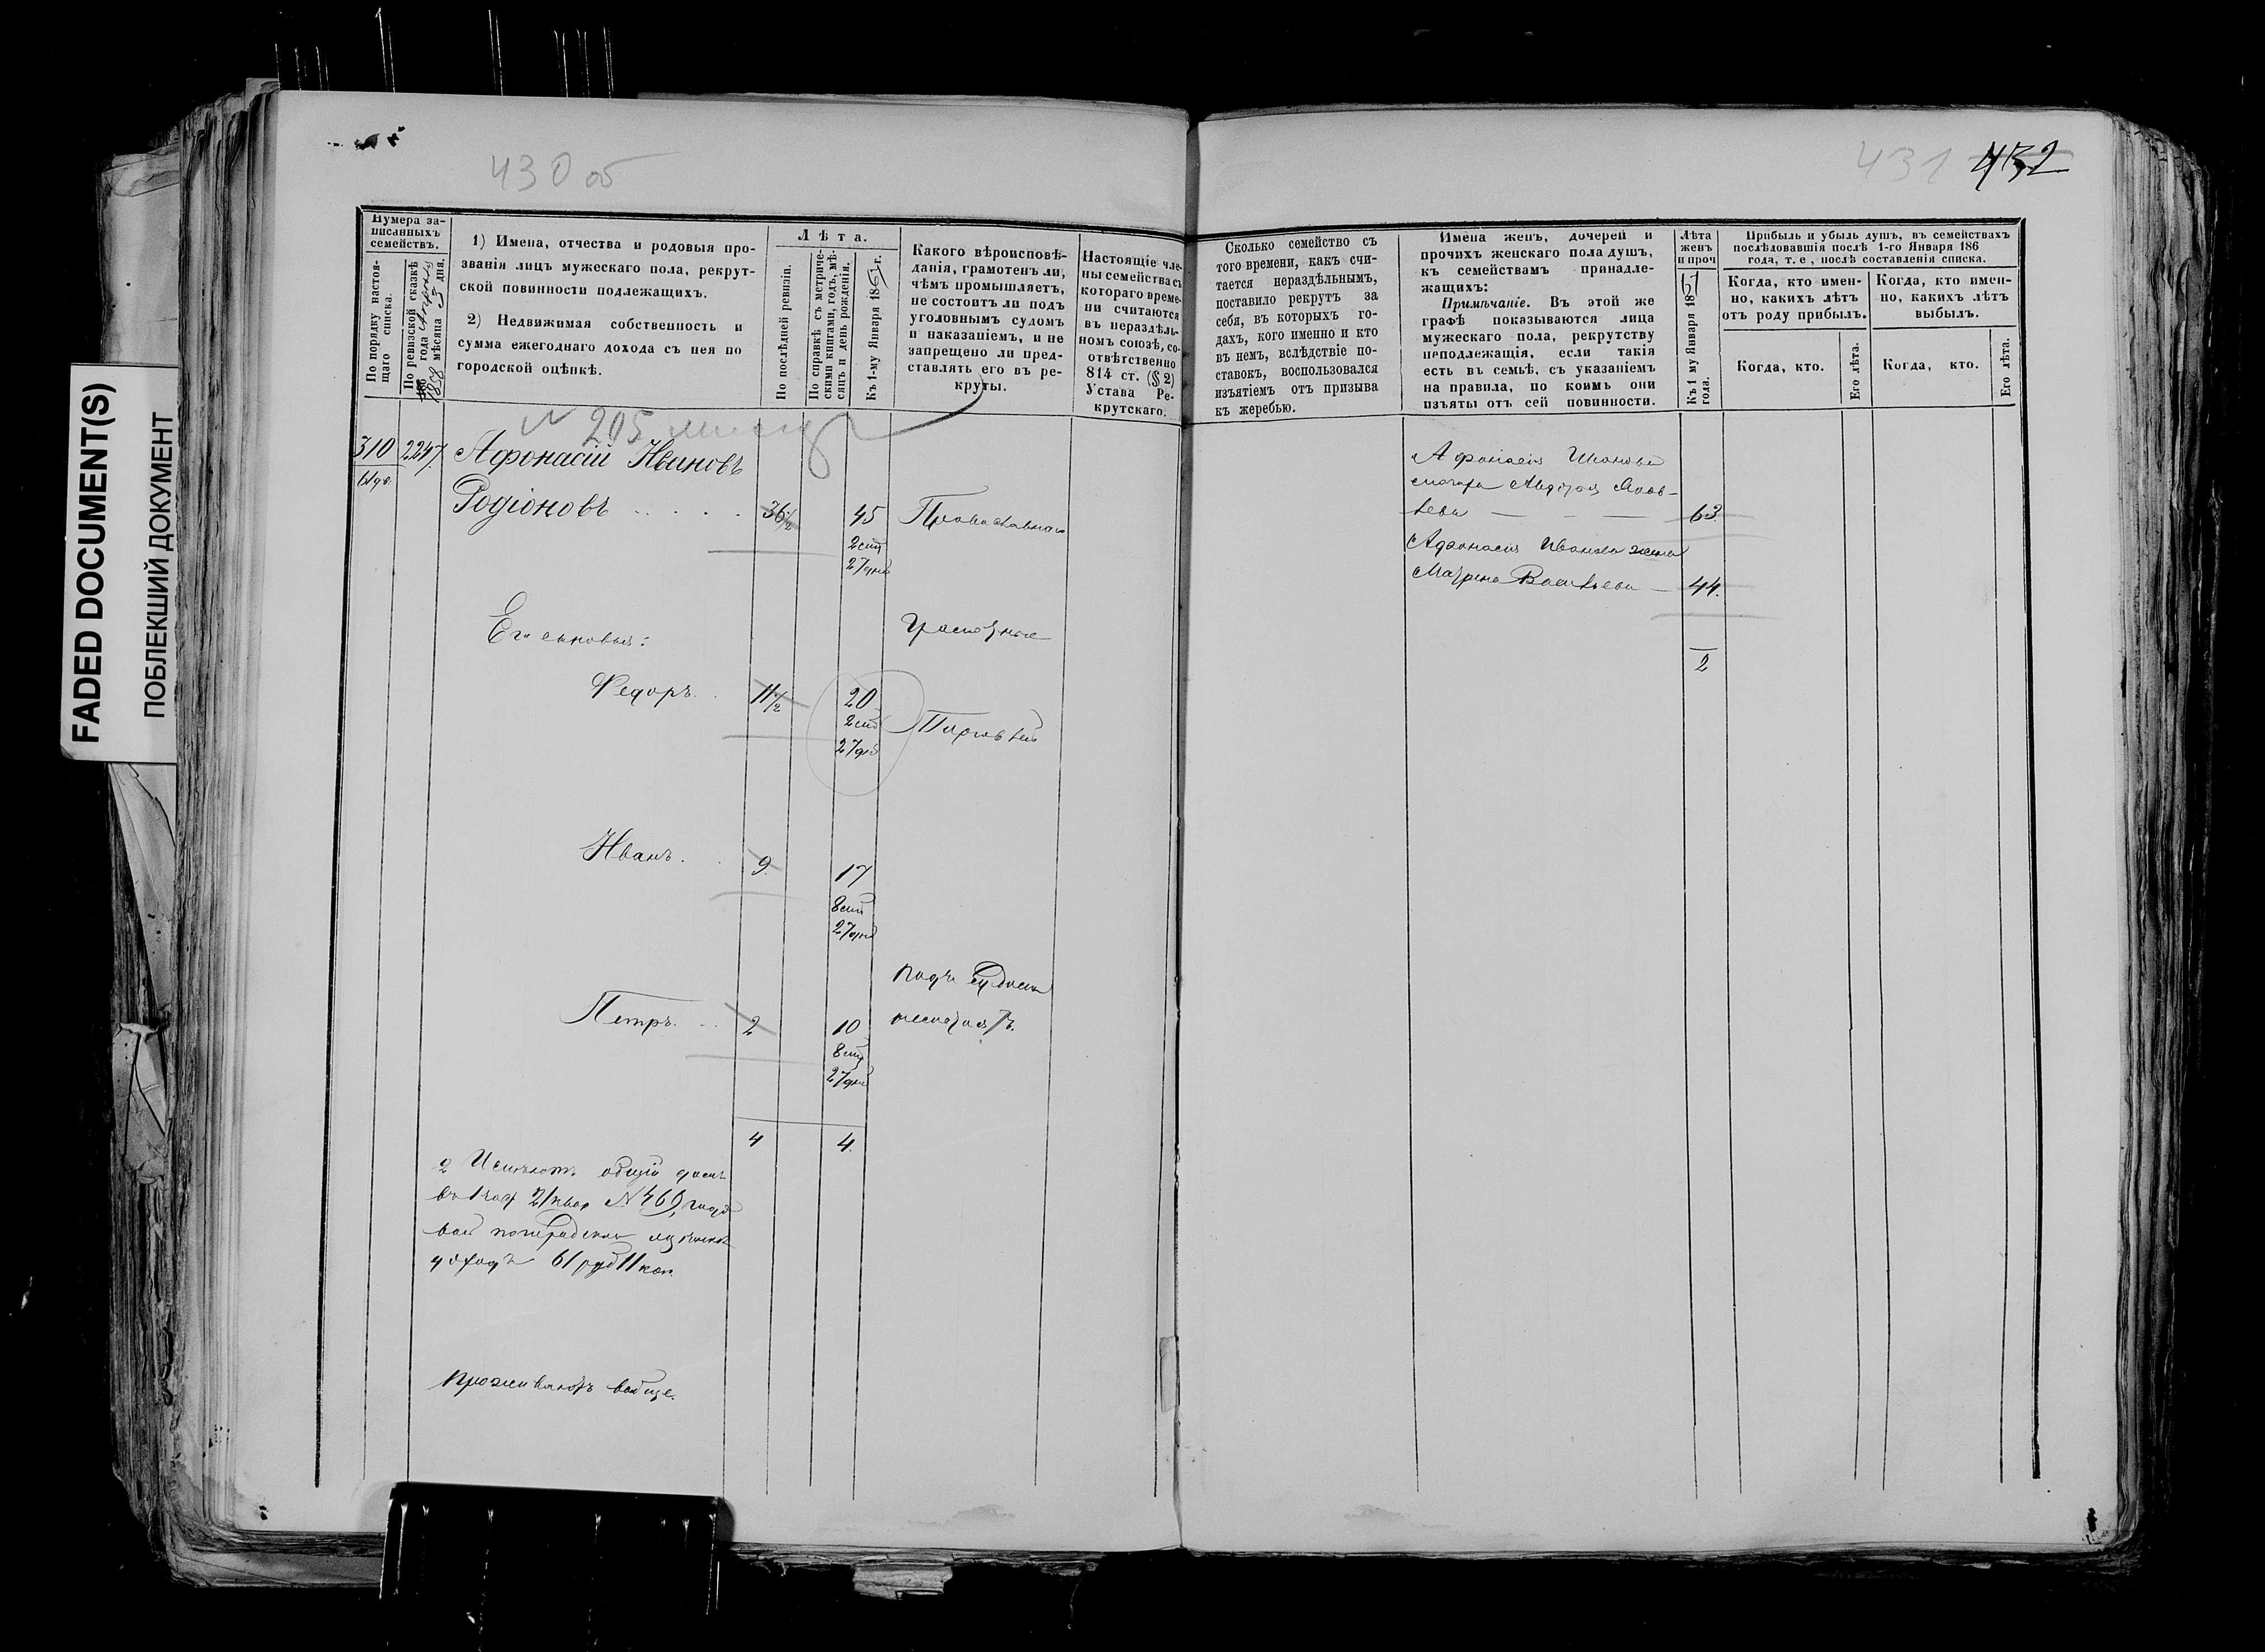 FADED DOCUMENT(S)
ПОБЛЕКШИЙ ДОКУМЕНТ
430 об
Нумера за-
писанныхъ
семействъ.
По порядку настоя-
щаго списка.
По ревизской сказкѣ
1858 года Апрѣля
мѣсяца 3 дня.
1) Имена, отчества и родовыя про-
званія лицъ мужескаго пола, рекрут-
ской повинности подлежащихъ.
2) Недвижимая собственность и
сумма ежегоднаго дохода съ нея по
городской оцѣнкѣ.
Лѣта.
По послѣдней ревизіи.
По справкѣ съ метриче-
скими книгами, годъ, мѣ-
сяцъ и день рожденія.
Къ 1-му Января 1867 г.
Какого вѣроисповѣ-
данія, грамотенъ ли,
чѣмъ промышляетъ,
не состоитъ ли подъ
уголовнымъ судомъ
и наказаніемъ, и не
запрещено ли пред-
ставлять его въ ре-
круты.
Настоящіе чле-
ны семейства съ
котораго време-
ни считаются
въ нераздѣль-
номъ союзѣ, со-
отвѣтственно
814 ст. (§ 2)
Устава Ре-
крутскаго.
N 205
310 2247 Афонасій Ивановъ
Родіоновъ 36 1/2 45 Православнаго
27 дней
Его сыновья:
Грамотные
Федоръ 11 1/2 20
27 дней
Торговлей
Иванъ. 9 17
8
27 дней
подъ судомъ
Петръ. 2 10 несостоятъ.
8
27 дней
4 4.
2 Имѣютъ общій домъ
въ 1 част 21 квар № 469, годо
вой погородской оцѣнкѣ
доходъ 61 руб 11 коп
проживаютъ вобще.
431 432
Сколько семейство съ
того времени, какъ счи-
тается нераздѣльнымъ,
поставило рекрутъ за
себя, въ которыхъ го-
дахъ, кого именно и кто
въ немъ, вслѣдствіе по-
ставокъ, воспользовался
изъятіемъ отъ призыва
къ жеребью.
Имена женъ, дочерей и
прочихъ женскаго пола душъ,
къ семействамъ принадле-
жащихъ:
Примѣчаніе. Въ этой же
графѣ показываются лица
мужескаго пола, рекрутству
неподлежащія, если такія
есть въ семьѣ, съ указаніемъ
на правила, по коимъ они
изъяты отъ сей повинности.
Лѣта
женъ
и проч
Къ 1 му Января 1867
года.
Прибыль и убыль душъ, въ семействахъ
послѣдовавшія послѣ 1-го Января 186
года, т. е., послѣ составленія списка.
Когда, кто имен-
но, какихъ лѣтъ
отъ роду прибылъ.
Когда, кто имен-
но, какихъ лѣтъ
выбылъ.
Когда, кто.
Его лѣта.
Когда, кто.
Его лѣта.
Афонасія Иванова
Яков-
лева 63.
Афонасія Иванова жена
Матрена Васильева 44.
2